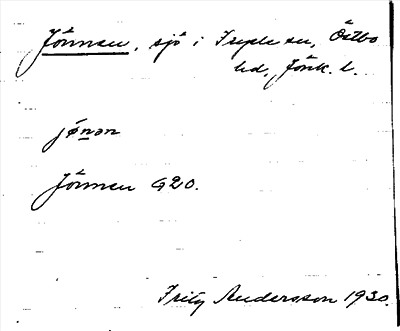 Jönnen, sjö i Tryple sn, Östbo
hd, Jönk. l.
jønən
Jönnen G20.
Fritz Andersson 1930.